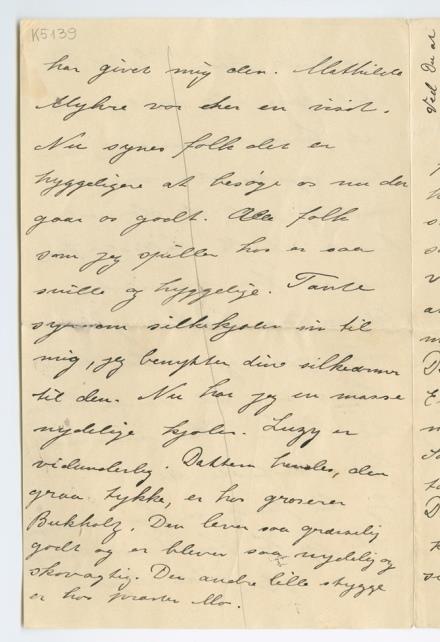 K5139
har givet mig den. Mathilde
Myhre var her en visit.
Nu synes folk det er
hyggeligere at besøge os nu der
gaar os godt. Alle folk
som jeg spiller hos er saa
snille og hyggelige. Tante
syr om silkekjolen min til
mig, jeg benytter dine silkeærmer
til den. Nu har jeg en masse
nydelige kjoler. Luzy er
vidunderlig. Datteren hendes, den
graa tykke, er hos groserer
Bukholz. Den lever saa græsselig
godt og er blevet saa nydelig og
skovagtig. Den andre lille stygge
er hos Mo.
Ved Du at